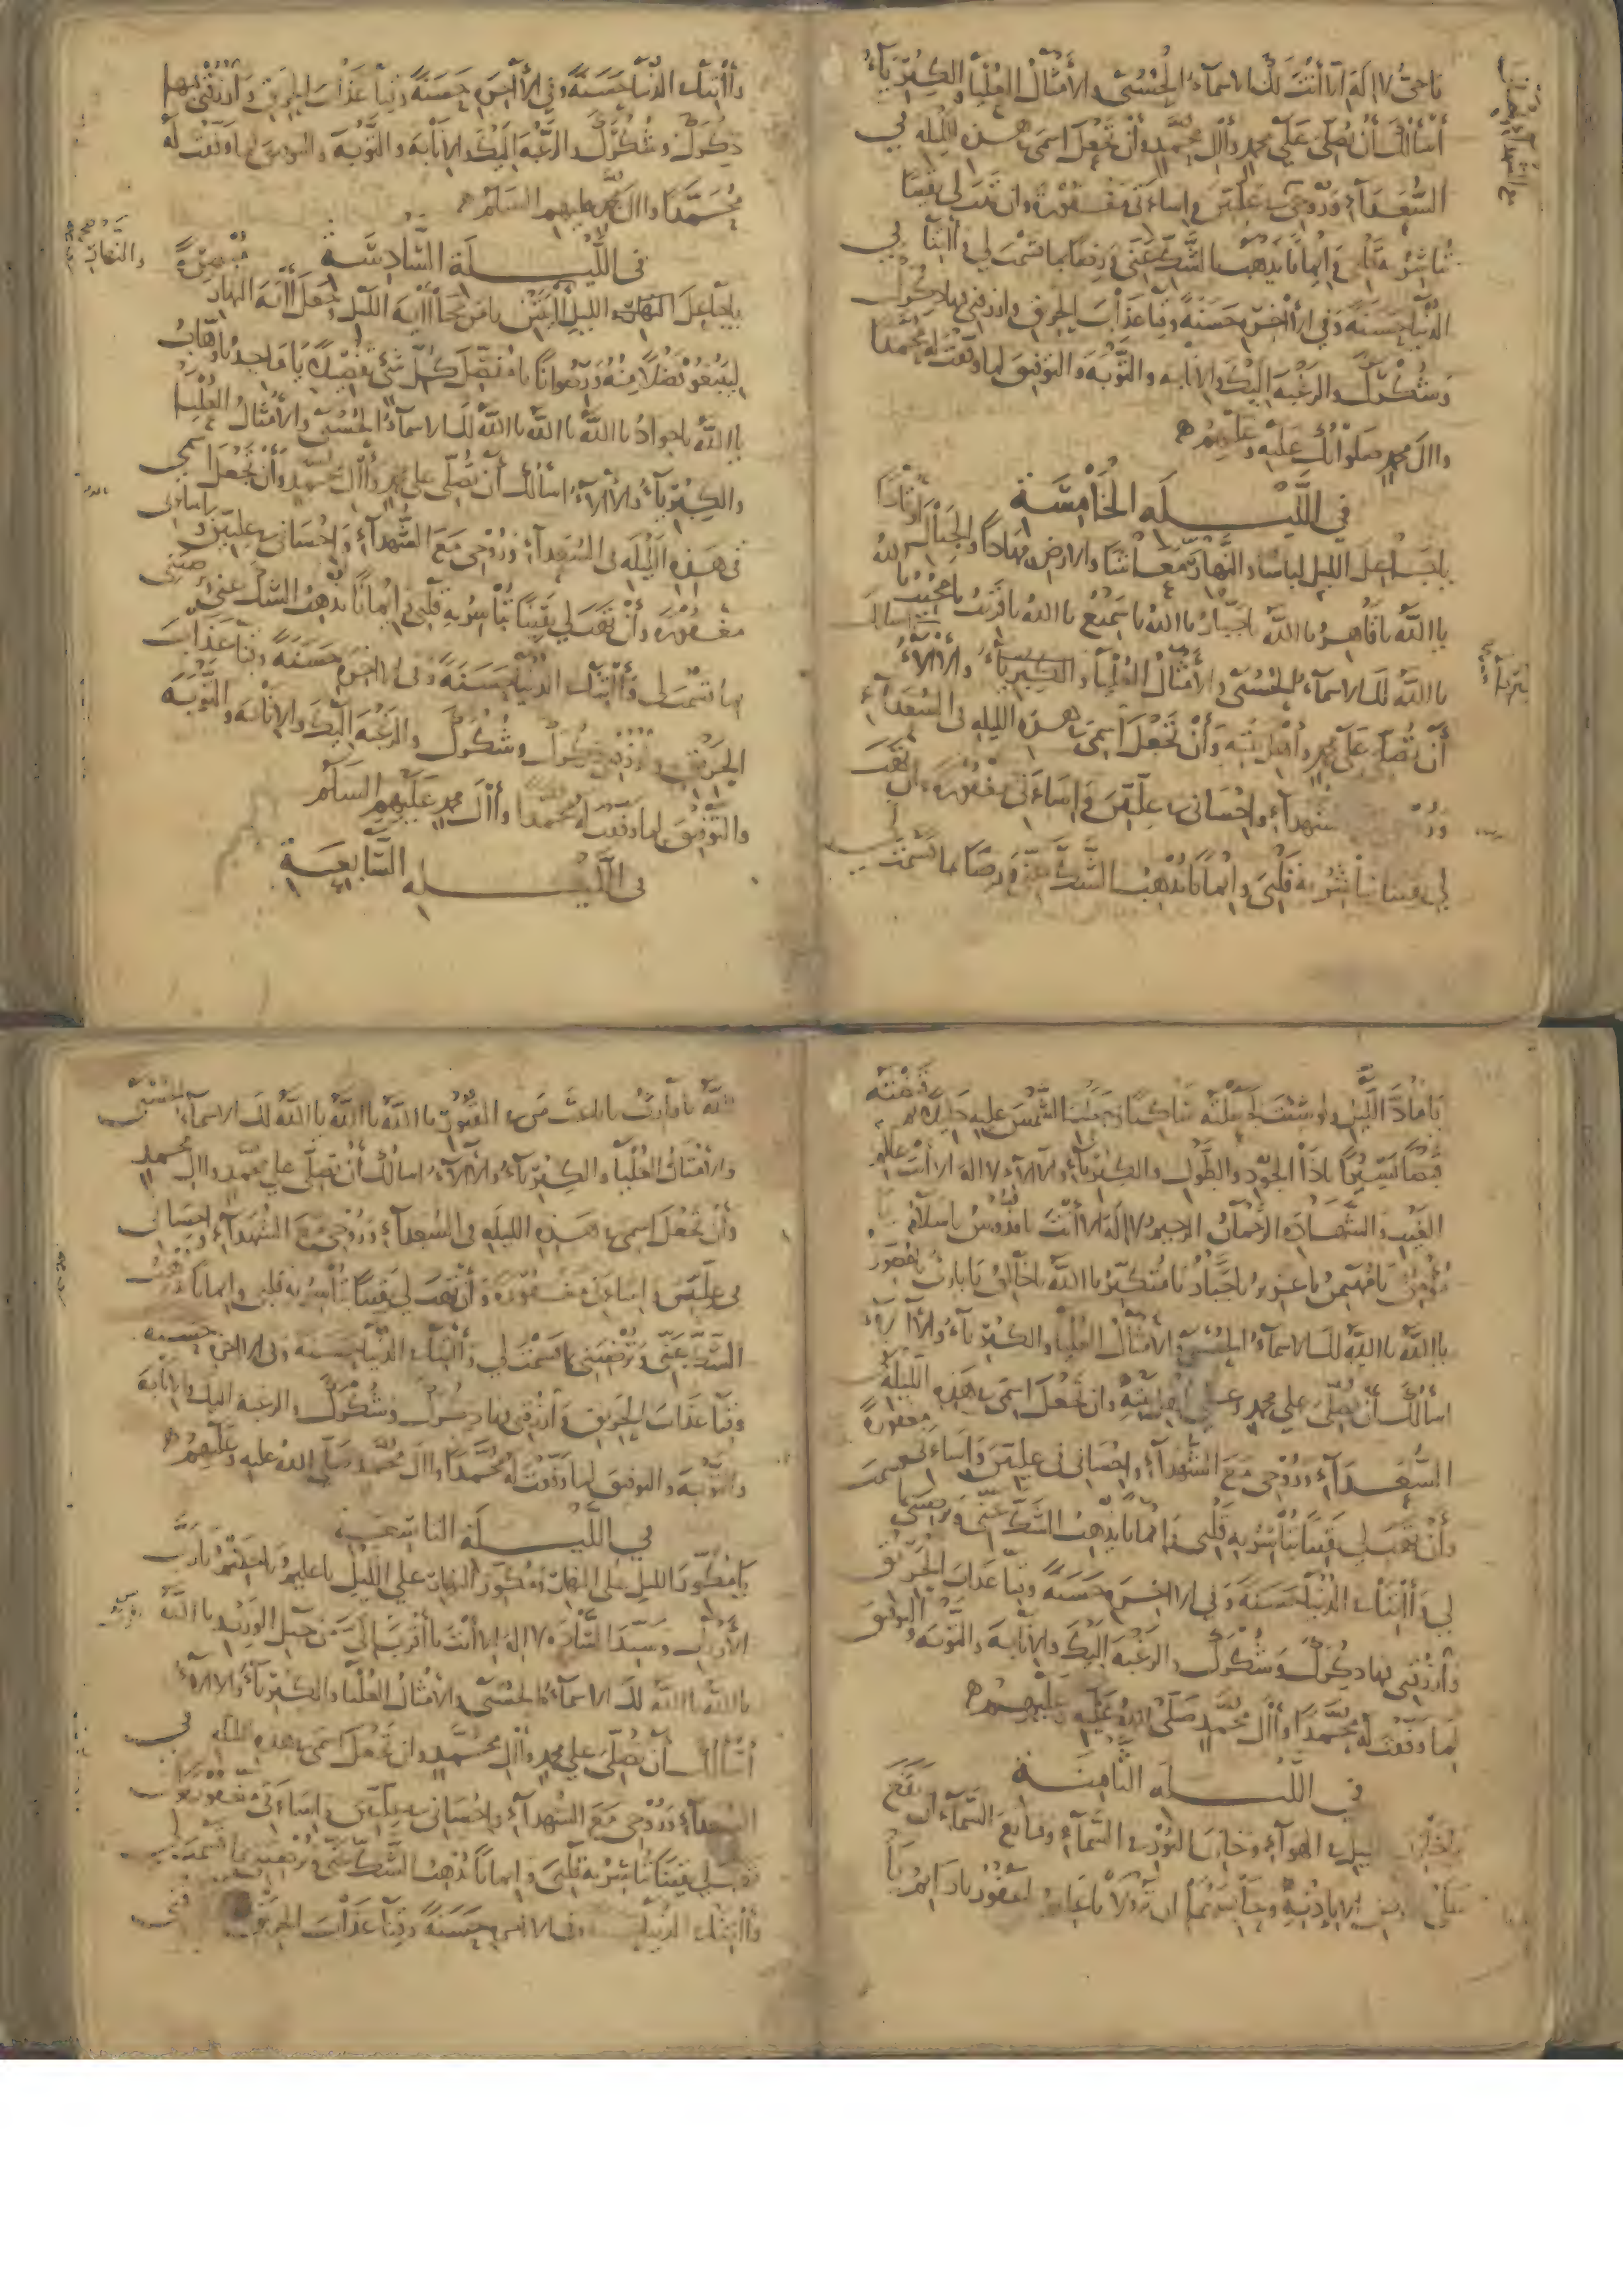 يا حي لا اله الا انت لك الاسماء الحسنى والامثال العليا والكبرياء
أسألك أن تصلي على محمد وال محمد وأن تجعل اسمي في هذه الليلة في
السعداء وروحي في عليين واساءتي مغفورة وان تهب لي يقينا
تباشر به قلبي وايمانا يذهب الشك عني ورضا بما قسمت لي واتنا في
الدنيا حسنة وفي الآخرة حسنة وقنا عذاب الحريق وارزقني فيها ذكرك
وشكرك والرغبة اليك والانابة والتوبة والتوفيق لما وفقت له محمدا
وال محمد صلواتك عليه وعليهم
في الليلة الخامسة
يا جاعل الليل لباسا والنهار معاشا والارض مهادا والجبال أوتادا
يا الله يا قاهر يا الله يا جبار يا الله يا سميع يا الله يا قريب يا مجيب يا الله
يا الله لك الاسماء الحسنى والأمثال العليا والكبرياء والآلاء أسألك
أن تصلي على محمد وأهل بيته وأن تجعل اسمي في هذه الليلة في السعداء
الشهداء واحساني في عليين واساءتي مغفورة وأن تهب
لي يقينا تباشر به قلبي وايمانا يذهب الشك عني ورضا بما قسمت
وآتنا في الدنيا حسنة وفي الآخرة حسنة وقنا عذاب الحريق وارزقني فيها
ذكرك وشكرك والرغبة اليك والانابة والتوبة والتوفيق لما وفقت له
محمدا وال محمد عليهم السلام
في الليلة السادسة
يا جاعل النهار والليل آيتين يا من محا آية الليل وجعل آية النهار مبصرة
ليبتغوا فضلا منه ورضوانا يا مفصل كل شيء تفصيلا يا ماجد يا وهاب
يا الله يا جواد يا الله يا الله يا الله لك الاسماء الحسنى والأمثال العليا
والكبرياء والآلاء أسألك أن تصلي على محمد وآل محمد وأن تجعل اسمي
في هذه الليلة في السعداء وروحي مع الشهداء واحساني في عليين واساءتي
مغفورة وأن تهب لي يقينا تباشر به قلبي وايمانا يذهب الشك عني وترضيني
بما قسمت لي وآتنا في الدنيا حسنة وفي الآخرة حسنة وقنا عذاب
الحريق وارزقني ذكرك وشكرك والرغبة اليك والانابة والتوبة
والتوفيق لما وفقت له محمدا وآل محمد عليهم السلام
في الليلة السابعة
يا ماد الظل ولو شئت لجعلته ساكنا وجعلت الشمس عليه دليلا ثم قبضته
قبضا يسيرا يا ذا الجود والطول والكبرياء والآلاء لا اله الا أنت عالم
الغيب والشهادة الرحمان الرحيم لا اله الا أنت يا قدوس يا سلام يا
مؤمن يا مهيمن يا عزيز يا جبار يا متكبر يا الله يا خالق يا بارئ يا مصور
يا الله يا الله لك الاسماء الحسنى والأمثال العليا والكبرياء والآلاء
أسألك أن تصلي على محمد وعلى أهل بيته وان تجعل اسمي في هذه الليلة
السعداء وروحي مع الشهداء واحساني في عليين واساءتي مغفورة
وأن تهب لي يقينا تباشر به قلبي وايمانا يذهب الشك عني وترضيني بما قسمت
لي وآتنا في الدنيا حسنة وفي الآخرة حسنة وقنا عذاب الحريق
وارزقني فيها ذكرك وشكرك والرغبة اليك والانابة والتوبة والتوفيق
لما وفقت له محمدا وآل محمد صلى الله عليه وعليهم
في الليلة الثامنة
الليل في الهواء وخازن النور في السماء ومانع السماء أن تقع
على الارض الا باذنه وحابسهما ان تزولا يا غفور يا دائم يا
الله يا وارث يا باعث من في القبور يا الله يا الله يا الله لك الاسماء الحسنى
والأمثال العليا والكبرياء والآلاء أسألك أن تصلي على محمد وال محمد
وأن تجعل اسمي في هذه الليلة في السعداء وروحي مع الشهداء واحساني
في عليين واساءتي مغفورة وأن تهب لي يقينا تباشر به قلبي وايمانا يذهب
الشك عني وترضيني بما قسمت لي وآتنا في الدنيا حسنة وفي الآخرة حسنة
وقنا عذاب الحريق وارزقني فيها ذكرك وشكرك والرغبة اليك والانابة
والتوبة والتوفيق لما وفقت له محمدا وال محمد صلى الله عليه وعليهم
في الليلة التاسعة
يا مكور الليل على النهار ومكور النهار على الليل يا عليم يا حكيم يا رب
الأرباب وسيد السادة لا اله الا أنت يا أقرب الي من حبل الوريد يا الله
يا الله يا الله لك الاسماء الحسنى والأمثال العليا والكبرياء والآلاء
أسألك أن تصلي على محمد وآل محمد وان تجعل اسمي في هذه الليلة في
السعداء وروحي مع الشهداء واحساني في عليين واساءتي مغفورة وأن
تهب لي يقينا تباشر به قلبي وايمانا يذهب الشك عني وترضيني بما قسمت لي
وآتنا في الدنيا وفي الآخرة حسنة وقنا عذاب الحريق